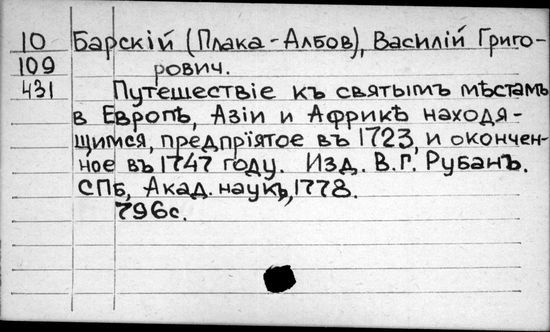 10 Барскій (Плака-Албов), Василій Григо-
109 рович.
431 Путешествіе къ святымъ мѣстамъ
в Европѣ, Азіи и Африкѣ находя-
щимся, предпріятое въ 1723, и окончен-
ное въ 1747 году. Изд. В.Г. Рубанъ.
СПБ, Акад. наукъ, 1778.
796с.